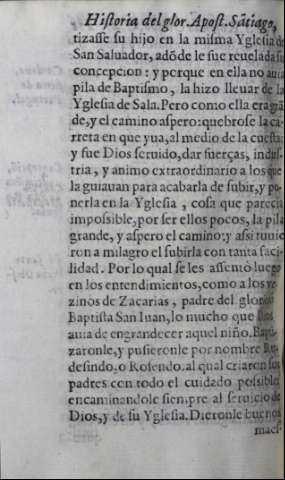 Historia del glor. Apost. Sātiago,
tizasse su hijo en la misma Yglesia de
San Saluador, adōde le fue reuelada su
concepcion: y porque en ella no auia
pila de Baptismo, la hizo lleuar de la
Yglesia de Sala. Pero como ella era grā
de, y el camino aspero: quebrose la ca-
rreta en que yua, al medio de la cuesta:
y fue Dios seruido, dar fuerças, indus-
tria, y animo extraordinario a los que
la guiauan para acabarla de subir, y po-
nerla en la Yglesia, cosa que parecia
impossible, por ser ellos pocos, la pila
grande, y aspero el camino: y assi tuuie
ron a milagro el subirla con tanta faci-
lidad. Por lo qual se les assento luego
en los entendimientos, como a los ve-
zinos de Zacarias, padre del glorioso
Baptista San Iuan, lo mucho que Dios
auia de engrandecer aquel niño. Bapti-
zaronle, y pusieronle por nombre Ru-
desindo, o Rosendo, al qual criaron sus
padres con todo el cuidado possible,
encaminandole siempre al seruicio de
Dios, y de su Yglesia. Dieronle buenos
maes-